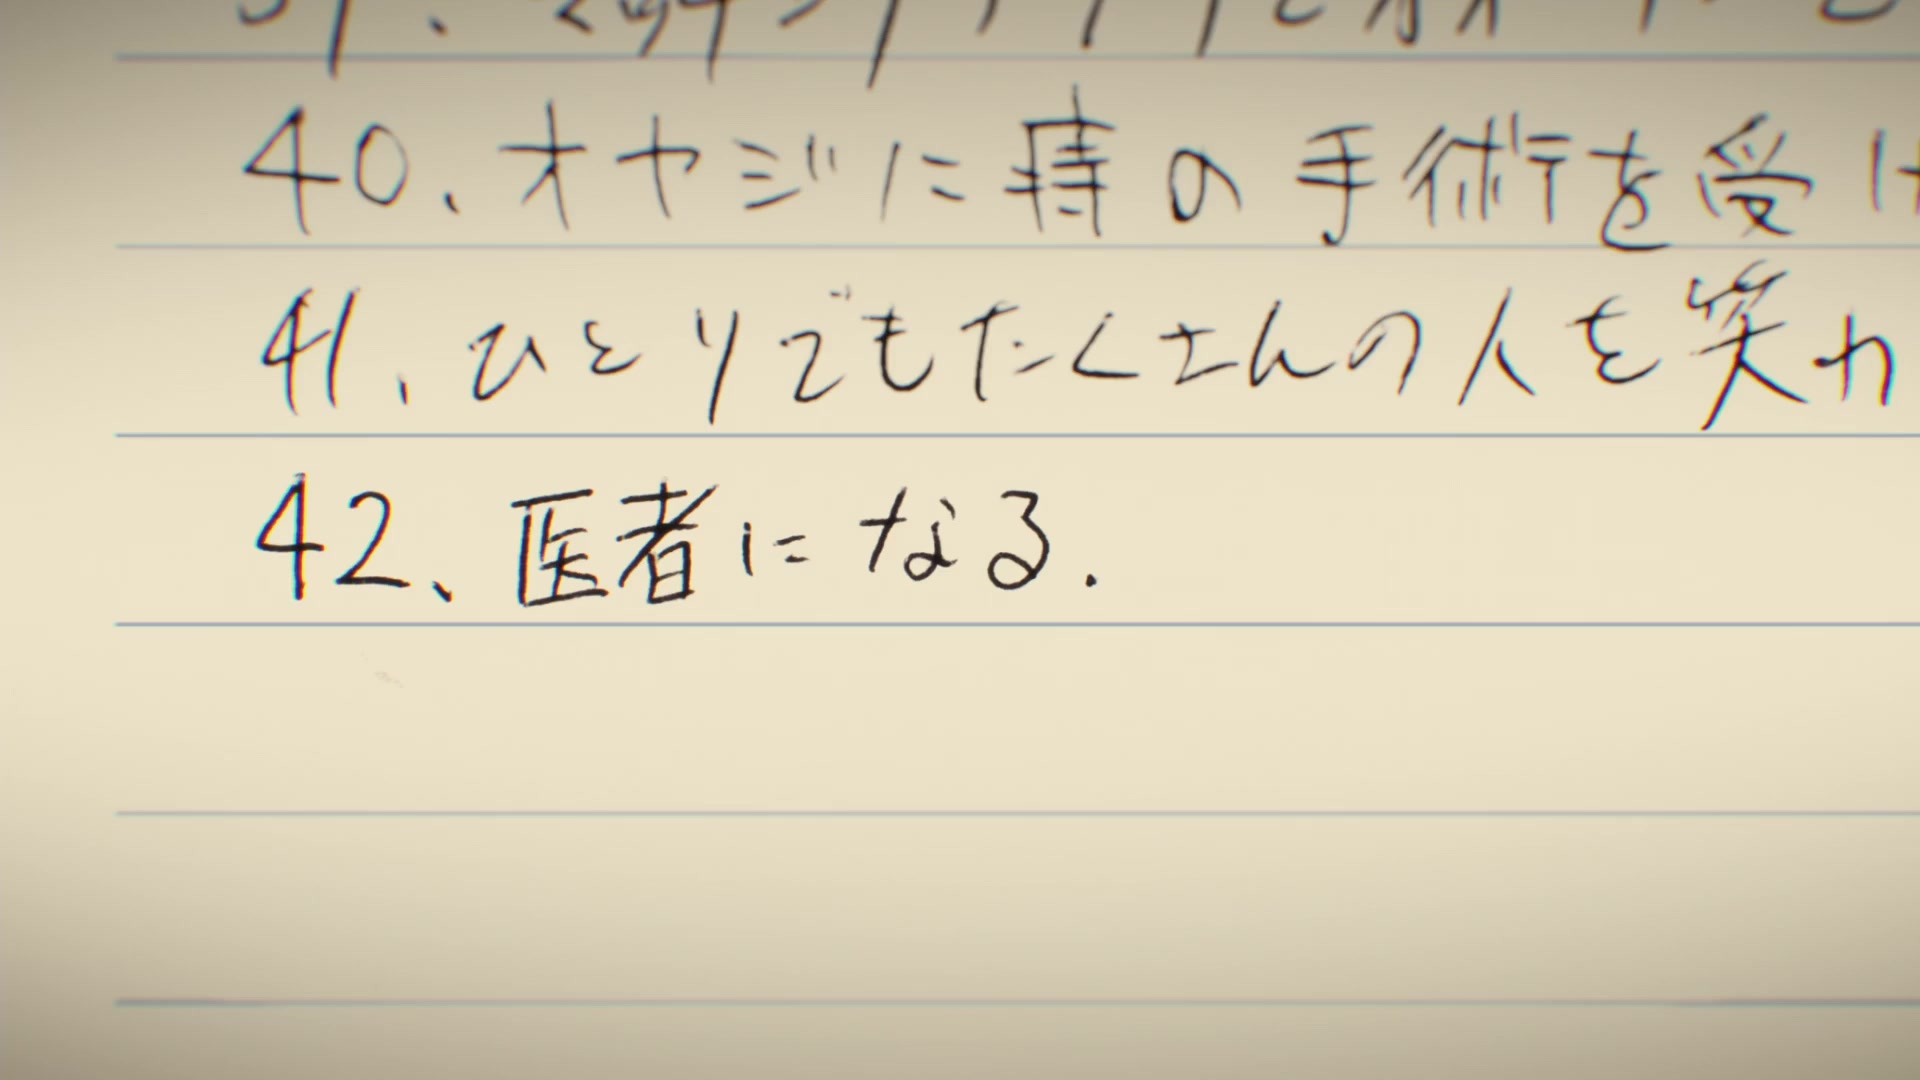 40、オヤジに痔の手術を受け
41、ひとりでもたくさんの人を笑わ
42、医者になる.